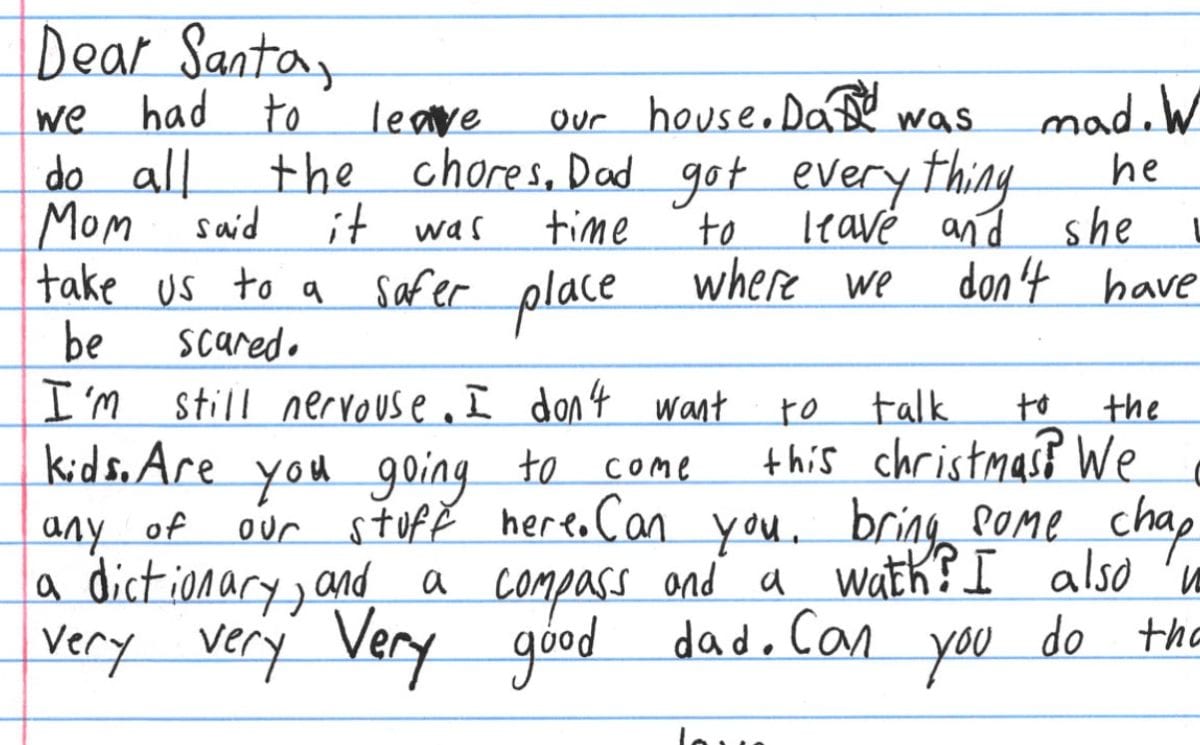 Dear Santa,
we had to leave our house. Dad was mad. W
do all the chores. Dad got everything he
Mom said it was time to leave and she
take us to a safer place where we don't have
be scared.
I'm still nervouse. I don't want to talk to the
kids. Are you going to come this christmas? We
any of our stuff here. Can you. bring some chap
a dictionary, and a compass and a wath? I also w
very very very good dad. Can you do tha
love